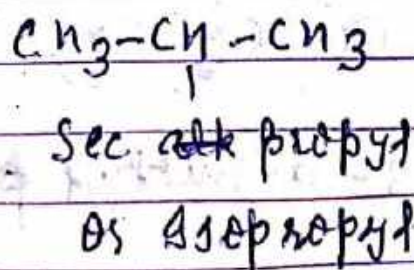 CH3-CH-CH3
|
Sec. propyl
or Isopropyl